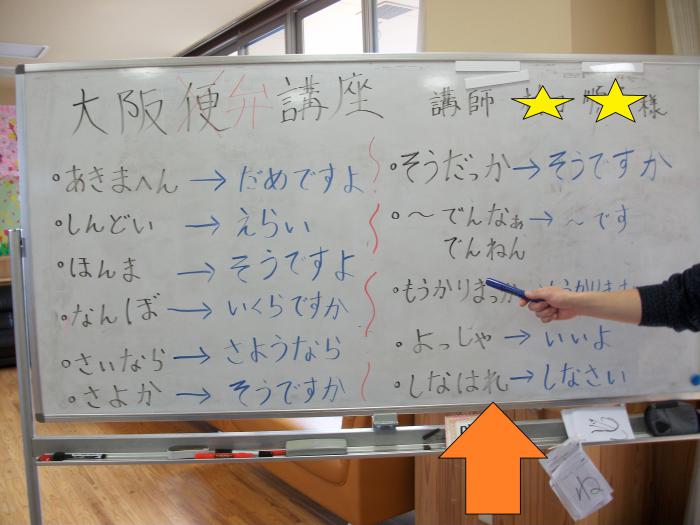 大阪便弁講座
講師 様
・あきまへん→だめですよ
・しんどい→えらい
・ほんま→そうですよ
・なんぼ→いくらですか
・さいなら→さようなら
・さよか→そうですか
・そうだっか→そうですか
・～でんなぁ→～です
でんねん
・もうかりまっか
・よっしゃ→いいよ
・しなはれ→しなさい